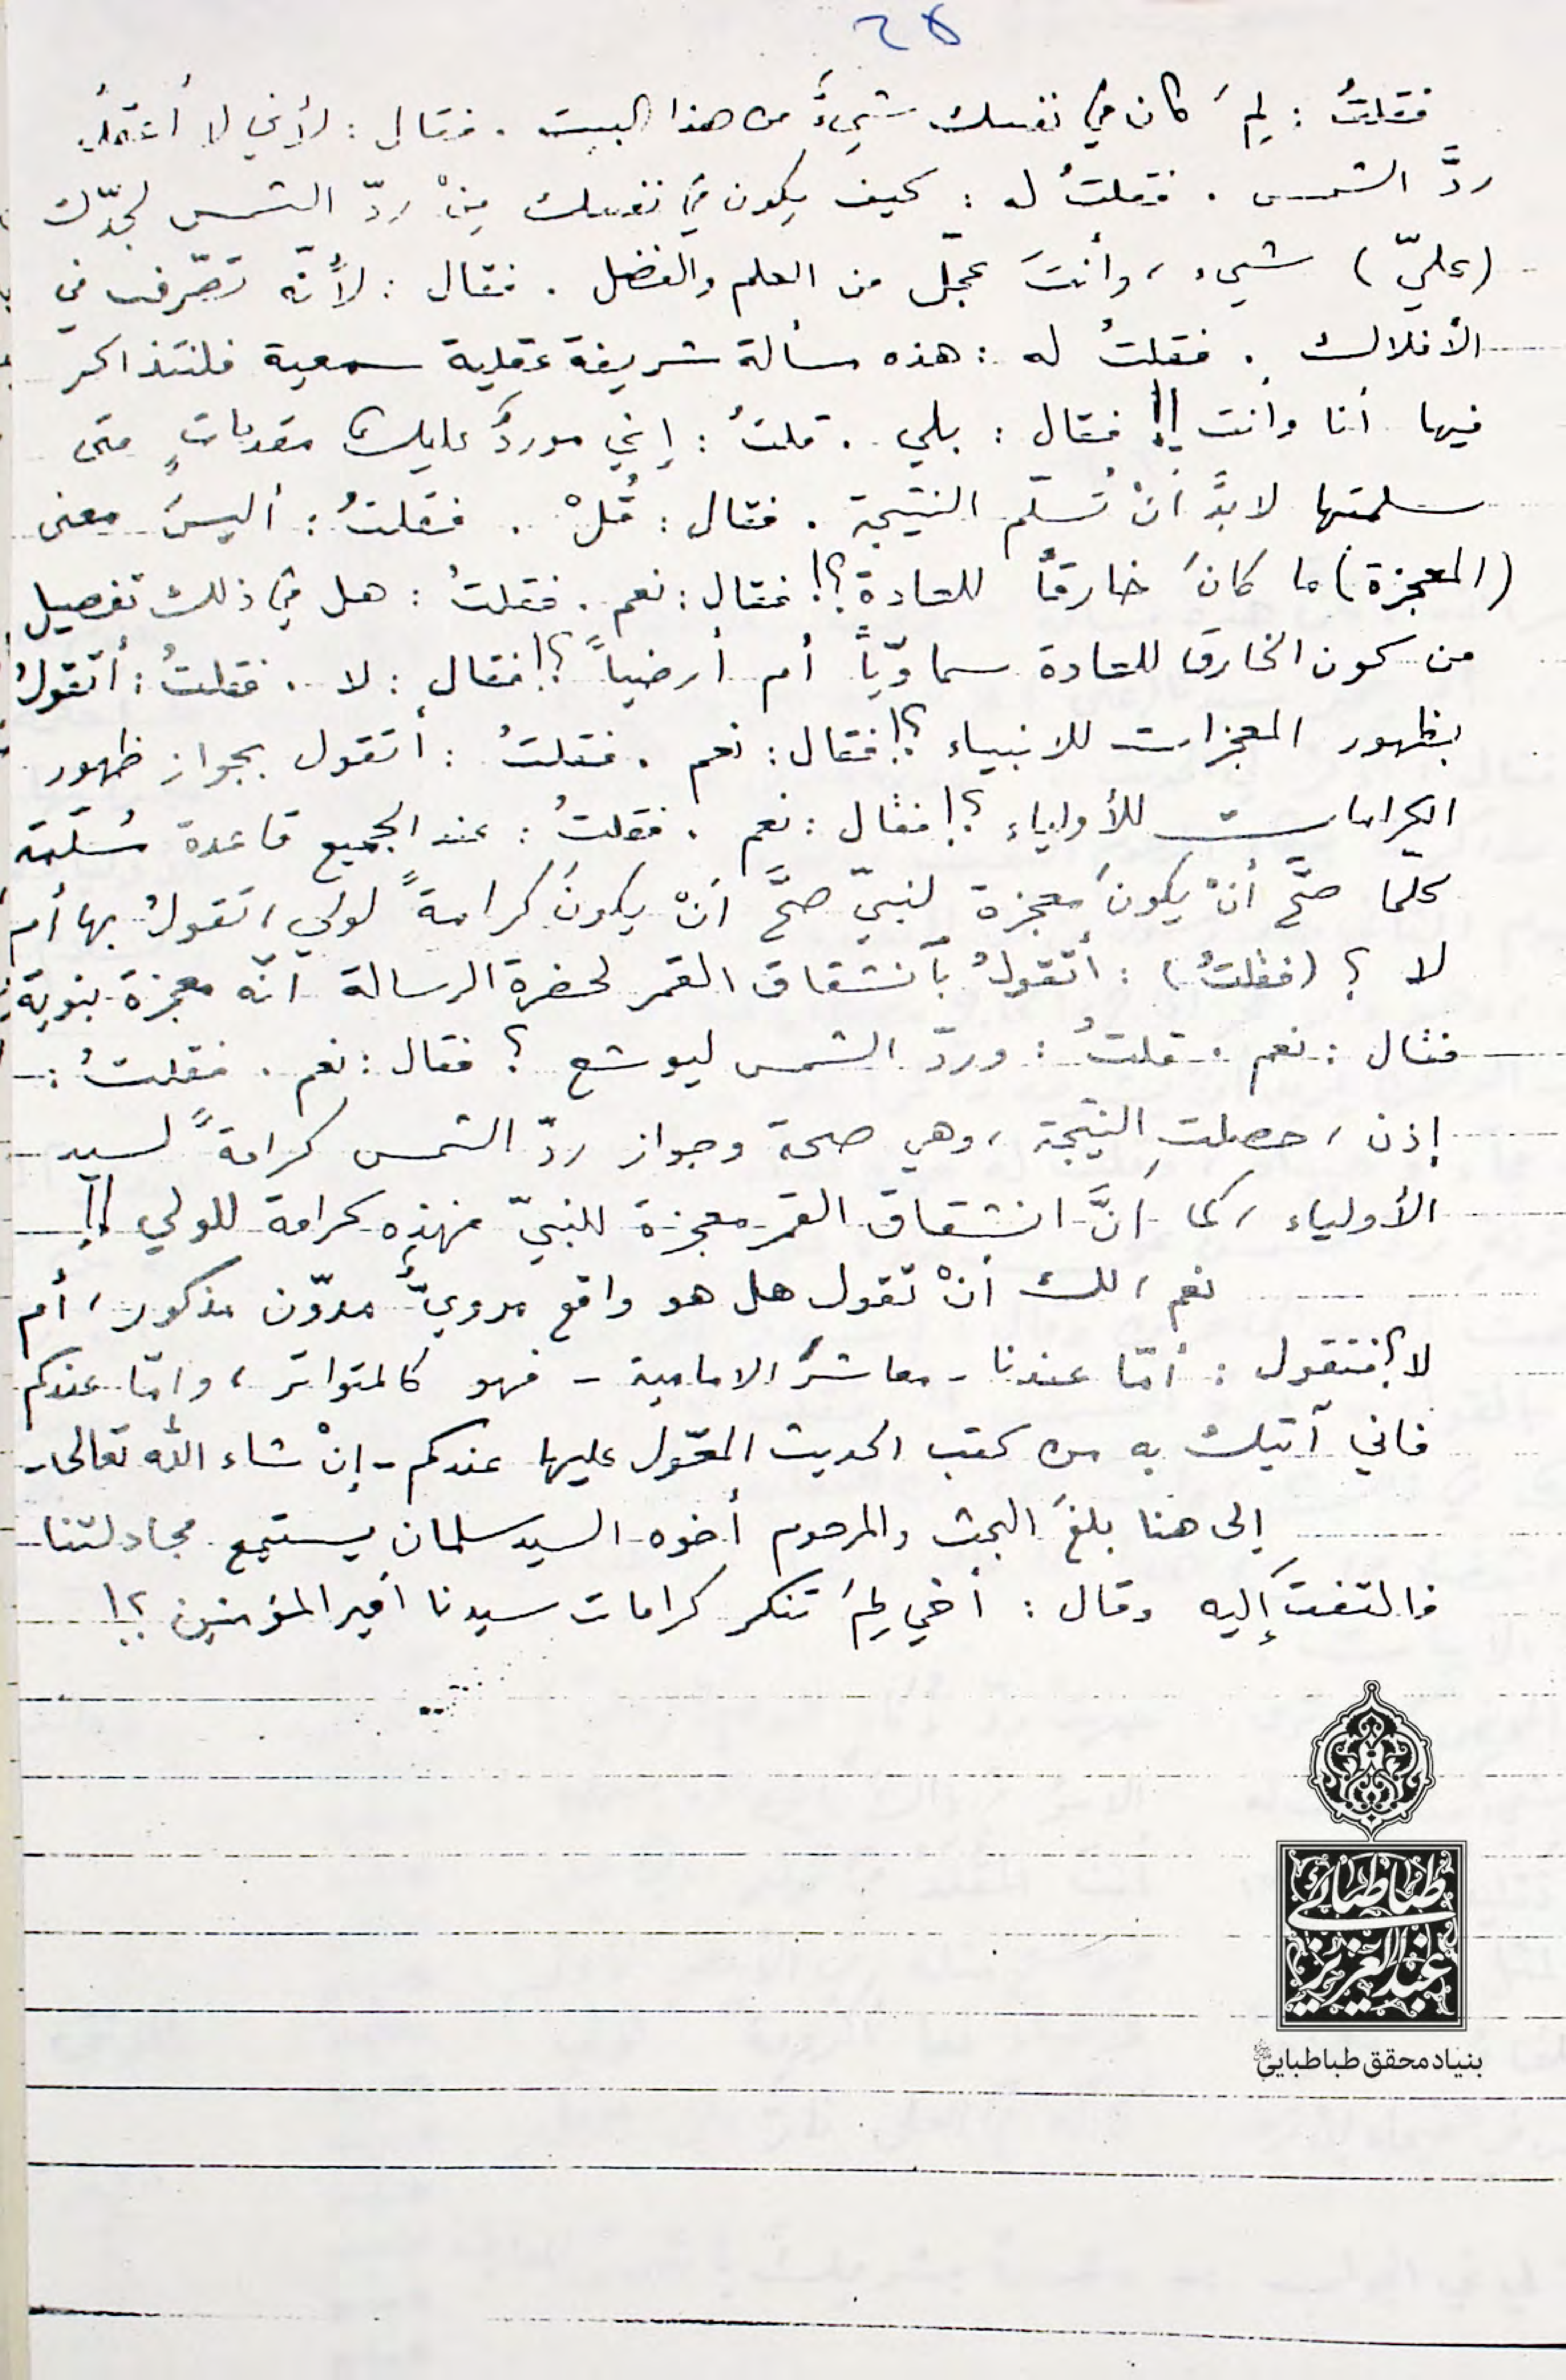 ٢٨
فقلتُ : لِمَ كان في نفسك شيءٌ من هذا البيت . فقال : لأني لا أعتقدُ
ردَّ الشمس . فقلتُ له : كيف يكون في نفسك مِنْ ردّ الشمس لجدّك
(عليّ) شيء ، وأنتَ بمحلّ من العلم والفضل . فقال : لأنّه تصّرف في
الأفلاك . فقلتُ له : هذه مسألة شريفة عقلية سمعية فلنتذاكر
فيها أنا وأنت !! فقال : بلى . قلتُ : إني موردٌ عليك مقدماتٍ متى
سلمتها لابدَّ أنْ تُسلّم النتيجة . فقال : قُلْ . فقلتُ : أليسَ معنى
(المعجزة) ما كانَ خارقاً للعادة ؟! فقال : نعم . فقلتُ : هل في ذلك تفصيل
من كون الخارق للعادة سماويّاً أم أرضياً ؟! فقال : لا . فقلتُ : أتقولُ
بظهور المعجزات للانبياء ؟! فقال : نعم . فقلتُ : أتقول بجواز ظهور
الكرامات للأولياء ؟! فقال : نعم . فقلتُ : عند الجميع قاعدة مُسلّمة
كلّما صحَّ أنْ يكونَ معجزة لنبيّ صحَّ أنْ يكونَ كرامةً لولي ، تقولُ بها أم
لا ؟ (فقلتُ) : أتقولُ بآنشقاق القمر لحضرة الرسالة أنّه معجزة نبوية
فقال : نعم . قلتُ : وردّ الشمس ليوشع ؟ فقال : نعم . فقلتُ :
إذن ، حصلتِ النتيجة ، وهي صحة وجواز ردّ الشمس كرامةً لسيد
الأولياء ، كما أنَّ انشقاق القمر معجزة للنبيّ فهذه كرامة للولي !!
نعم ، لك أنْ تقول هل هو واقع مرويٌّ مدوّن مذكور ، أم
لا ؟ فنقول : أمّا عندنا - معاشرَ الامامية - فهو كالمتواتر ، وامّا عندكم
فاني آتيك به من كتب الحديث المعّول عليها عندكم - إنْ شاء الله تعالى -
إلى هنا بلغَ البحث والمرحوم أخوه السيد سلمان يستمع مجادلتنا
فالتفتَ إليه وقال : أخي لِمَ تنكر كرامات سيدنا أمير المؤمنين ؟!
طباطبائي
عبدالعزيز
بنیاد محقق طباطبایی